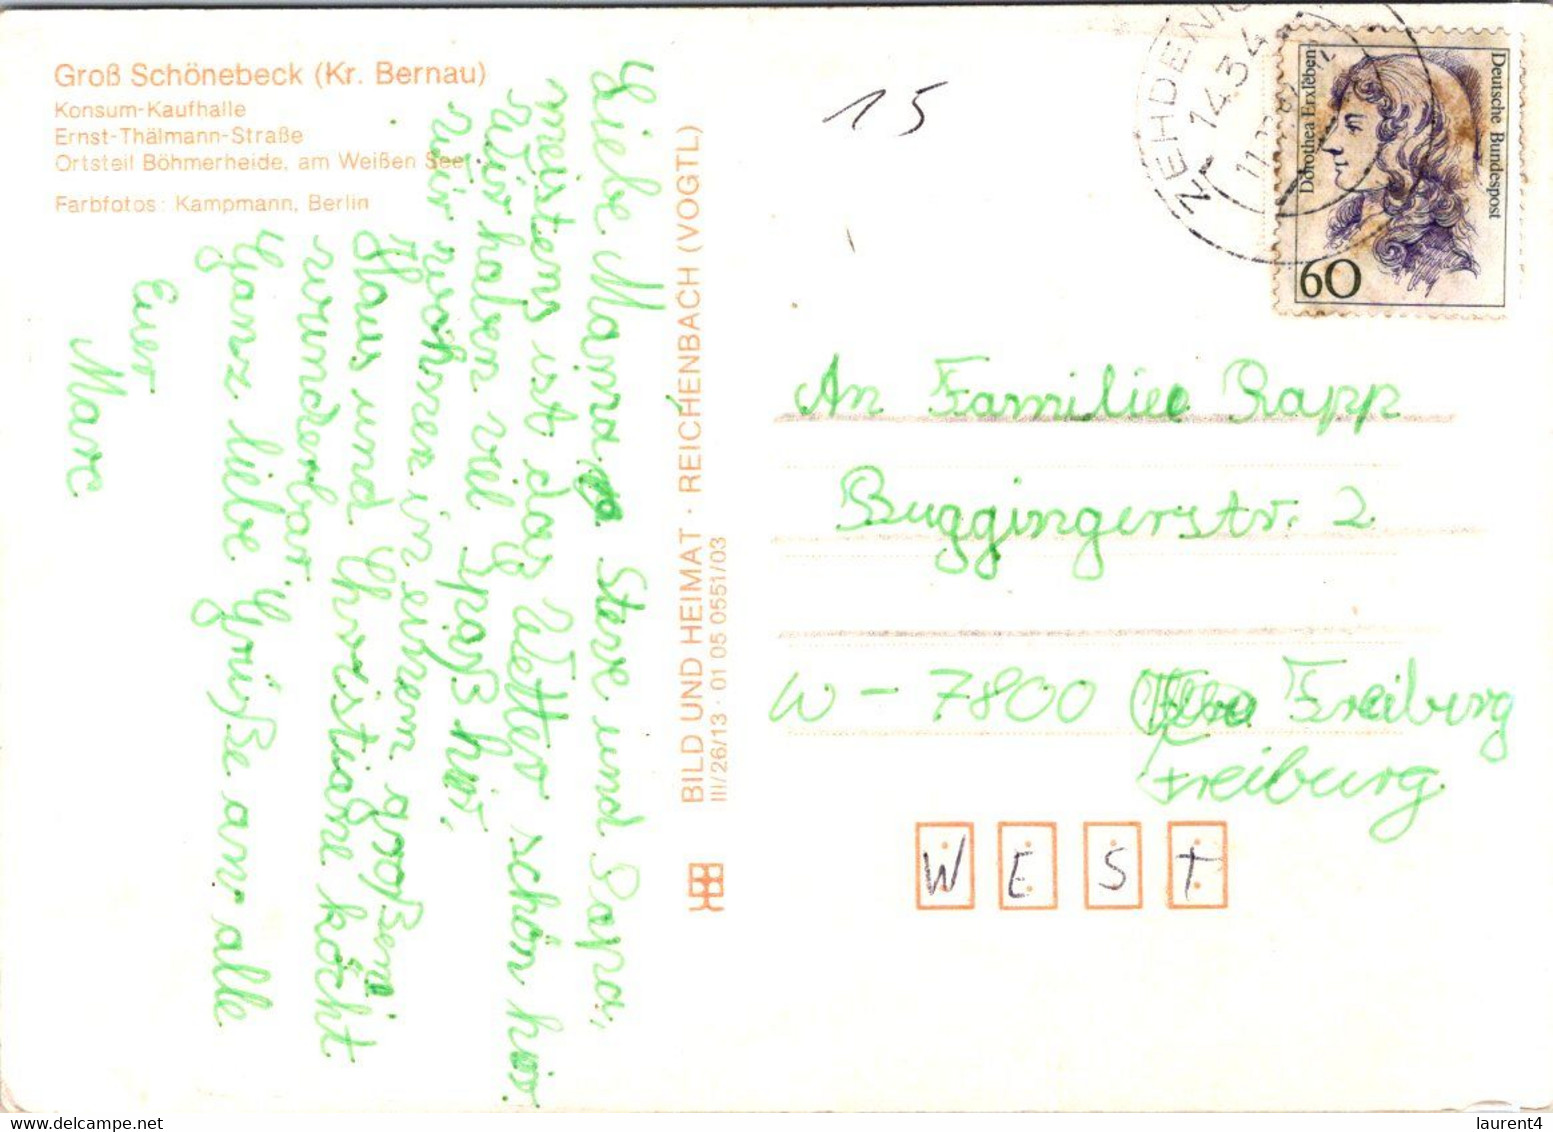 Groß Schönebeck (Kr. Bernau)
Konsum-Kaufhalle
Ernst-Thälmann-Straße
Ortsteil Böhmerheide, am Weißen See
Farbfotos: Kampmann, Berlin
Liebe Mama Steve und Papa,
meistens ist das Wetter schön hier
Wir haben viel spaß hier.
Wir wohnen in einem großem
Haus und Christiane kocht
wunderbar.
Ganz liebe Grüße an alle
Euer
Marc
BILD UND HEIMAT · REICHENBACH (VOGTL)
III/26/13 · 01 05 0551/03
15
ZEHDENICK
1434
11
Dorothea Erxleben
Deutsche Bundespost
60
An Familie Rapp
Buggingerstr. 2
W - 7800 Freiburg
Freiburg
WEST
laurent4